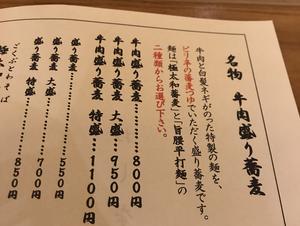 名物 牛肉盛り蕎麦
牛肉と白髪ネギがのった特製の麺を、
ピリ辛の蕎麦つゆでいただく盛り蕎麦です。
麺は「極太和蕎麦」と「旨腰平打麺」の
二種類からお選び下さい。
牛肉盛り蕎麦 ……800円
牛肉盛り蕎麦 大盛…950円
牛肉盛り蕎麦 特盛…1100円
盛り蕎麦 ……550円
盛り蕎麦 大盛……700円
盛り蕎麦 特盛……850円
ごくぶとわそば